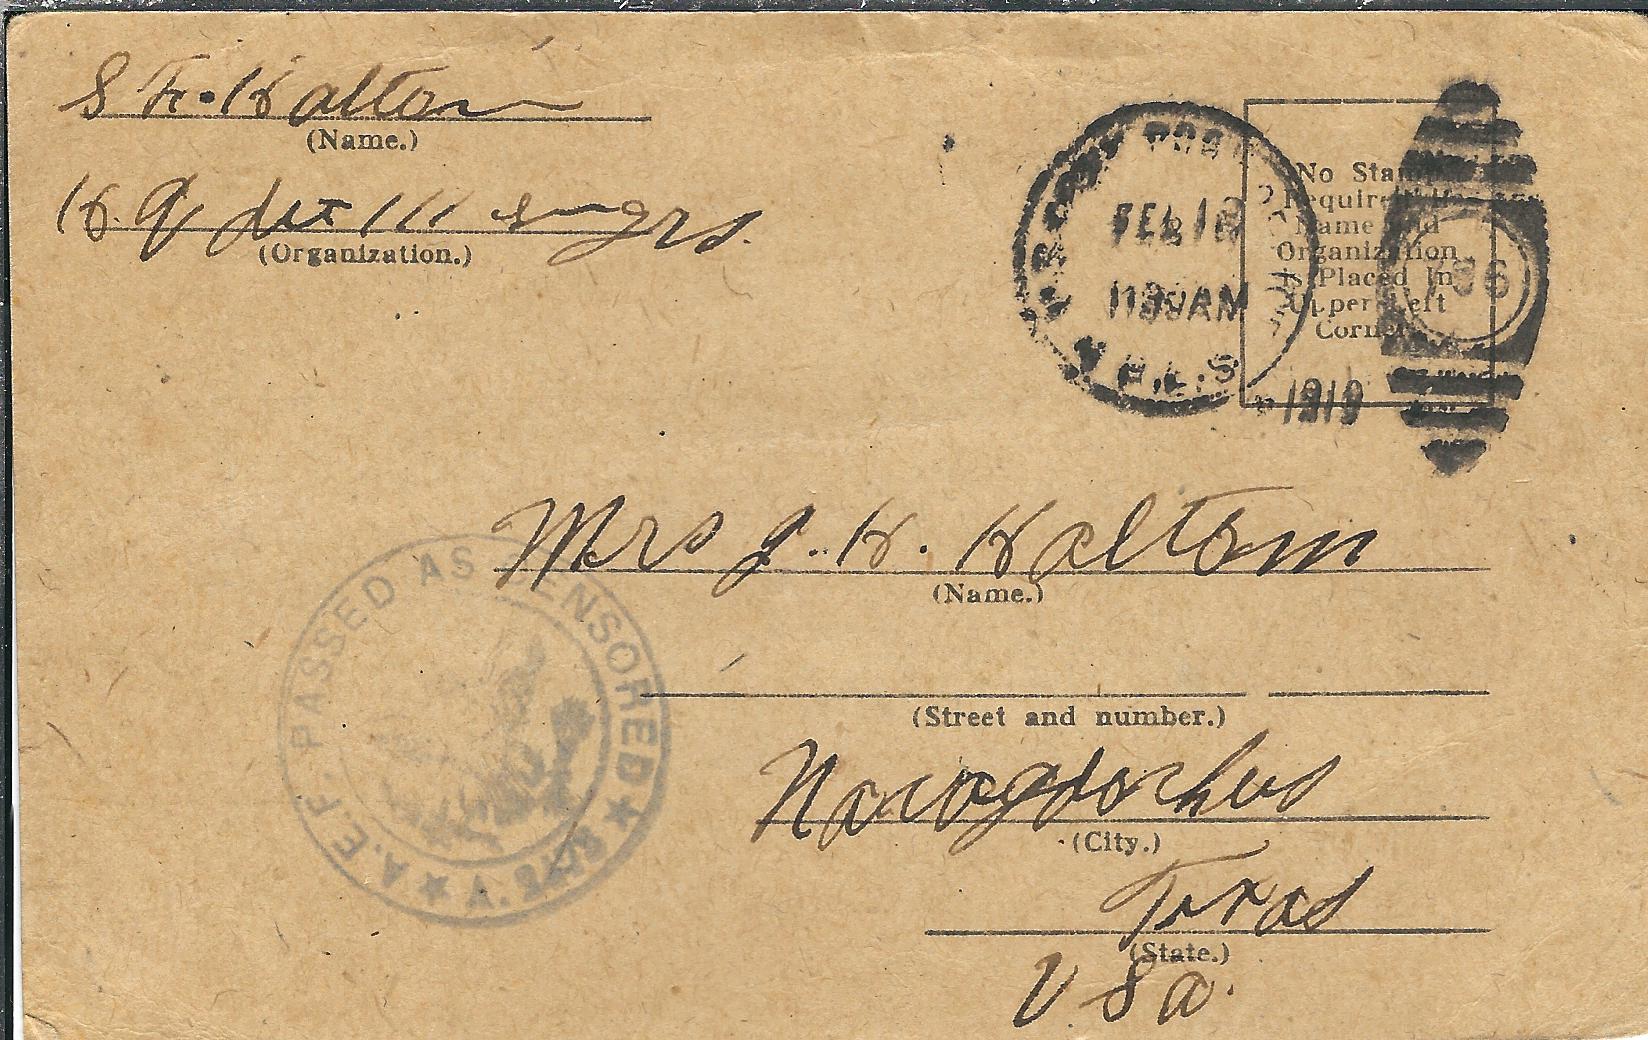 S F. Haltom
(Name.)
H. Q det 111 engrs.
(Organization.)
FEB 18
11 30 AM
1919
M.P.E.S.
No Stamp
Required If
Name and
Organization
is Placed In
Upper Left
Corner
Mrs J. H. Haltom
(Name.)
A.E.F. PASSED AS CENSORED
(Street and number.)
Nacogdoches
(City.)
Texas
(State.)
USa.